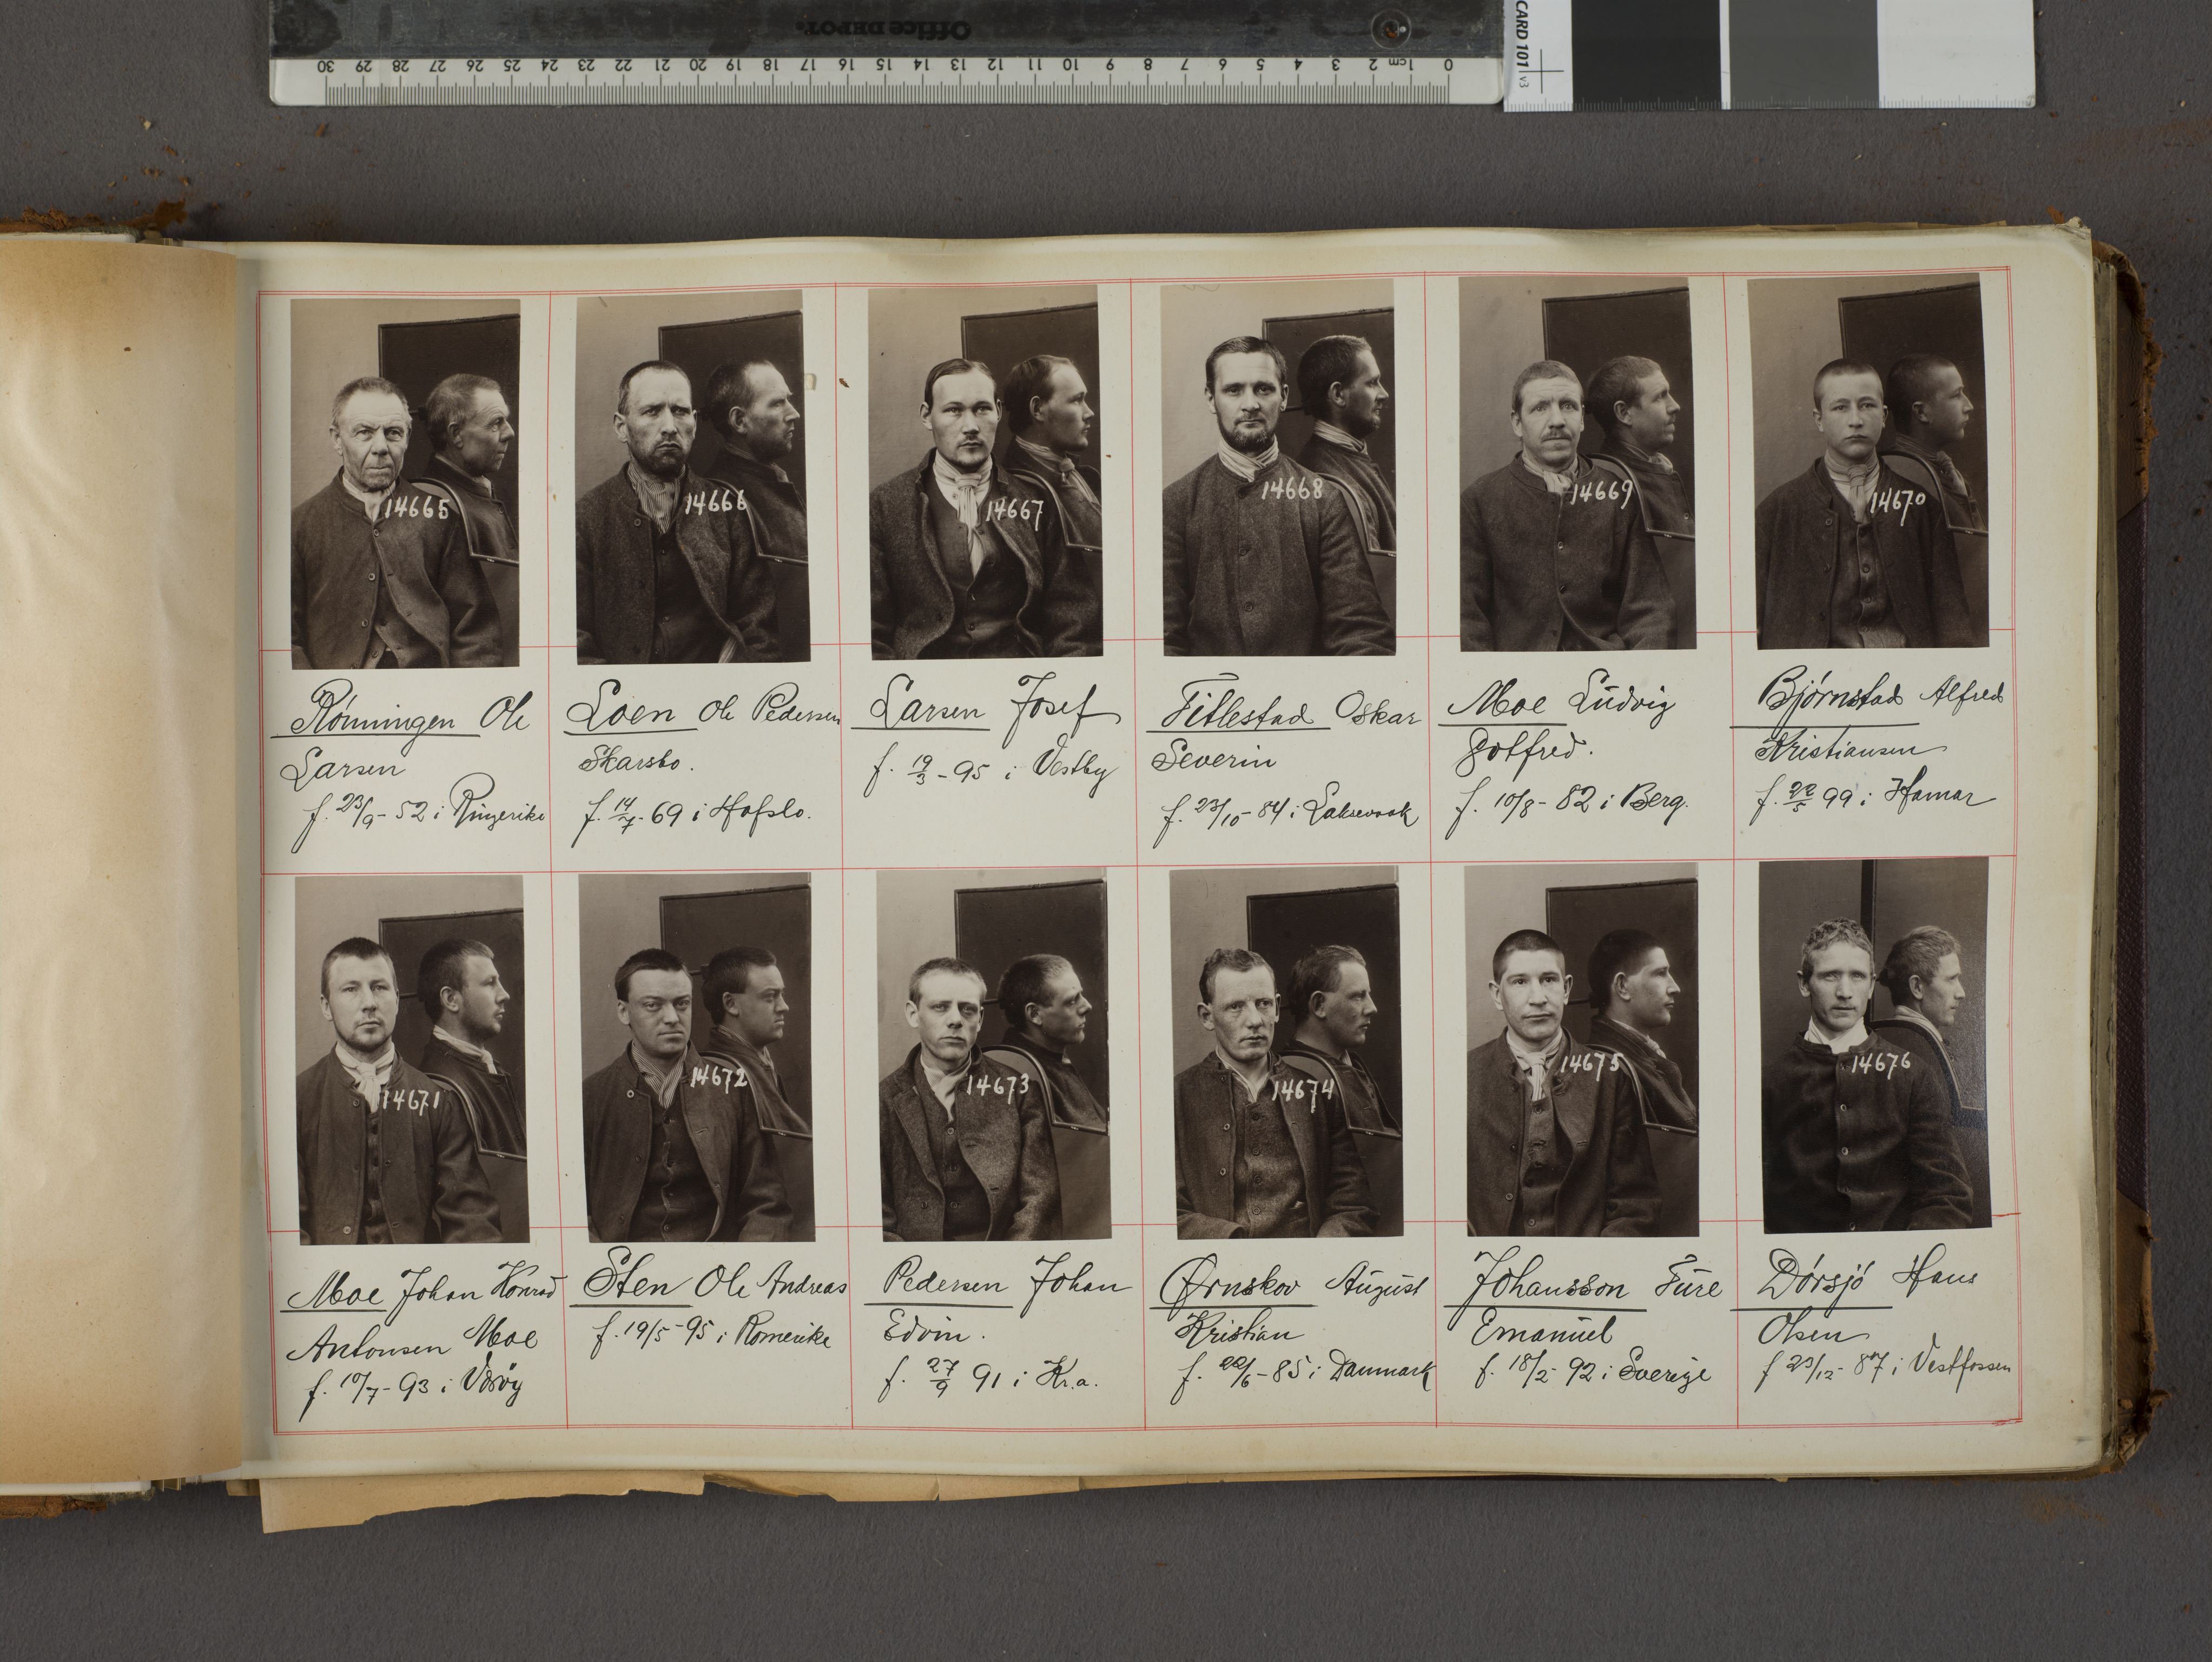 Office DEPOT.
30 29 28 27 26 25 24 23 22 21 20 19 18 17 16 15 14 13 12 11 10 9 8 7 6 5 4 3 2 1cm 0
CARD 101 v3
14665
14666
14667
14668
14669
14670
Rönningen Ole
Larsen
f. 23/9 - 52 i Ringerike
Loen Ole Pedersen
Skarsbo.
f. 14/7 - 69 i Hafslo.
Larsen Josef
f. 19/3 - 95 i Vestby
Titlestad Oskar
Severin
f. 23/10 - 84 i Laksevaak
Moe Ludvig
Gotfred.
f. 10/8 - 82 i Berg.
Bjórnstad Alfred
Kristiansen
f. 22/5 99 i Hamar
14671
14672
14673
14674
14675
14676
Moe Johan Konrad
Antonsen Moe
f. 10/7 - 93 i
Sten Ole Andreas
f. 19/5 - 95 i Romerike
Pedersen Johan
Edvin.
f. 27/9 91 i Kr.a.
Ørnskov August
Kristian
f. 22/6 - 85 i Danmark
Johansson Ture
Emanuel
f. 18/2 - 92 i Sverige
Dórsjó Hans
Olsen
f 23/12 - 87 i Vestfossen